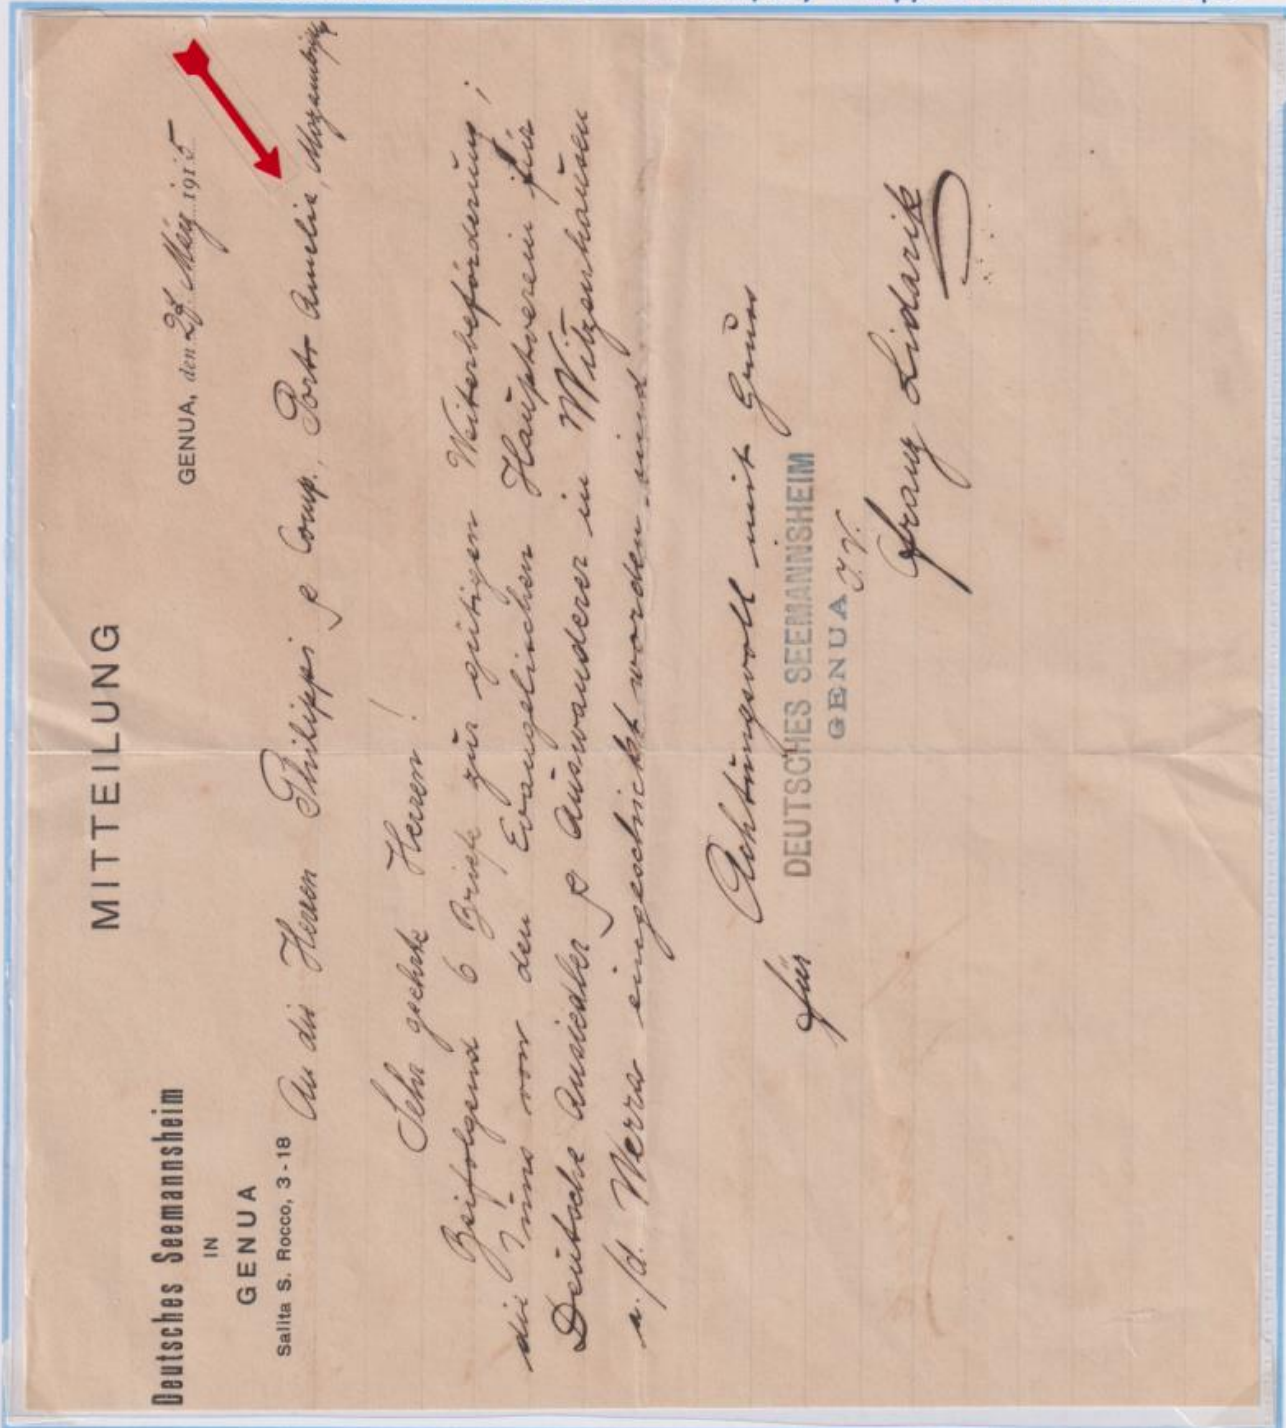 MITTEILUNG
Deutsches Seemannsheim
IN
GENUA
Salita S. Rocco, 3-18
GENUA, den 28 Mai 1915
An die Herren Philippi & Comp., Porto Amelia, Mozambique
Sehr geehrte Herren!
Beifolgend 6 Briefe zur gütigen Weiterbeförderung;
die uns von den Evangelischen Hauptverein für
Deutsche Ansiedler & Auswanderer in Witzenhausen
a./d. Werra eingeschickt worden sind
Achtungsvoll mit Gruss
für DEUTSCHES SEEMANNSHEIM
GENUA I.V.
Franz Lidarik